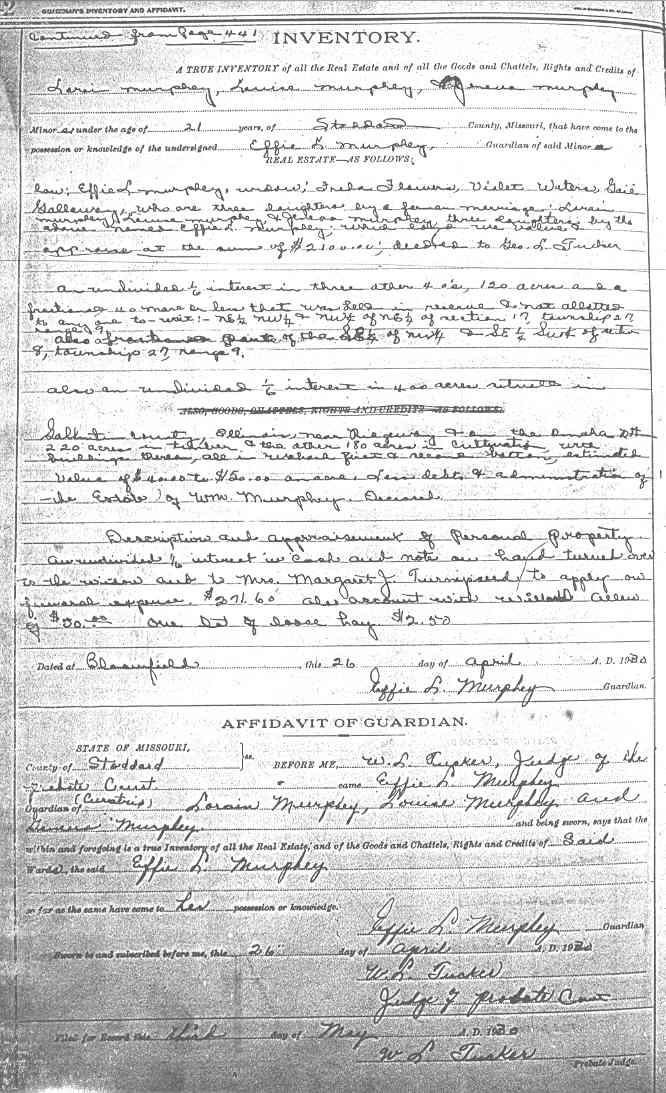 GUARDIAN'S INVENTORY AND AFFIDAVIT.
Continued from Page 441
INVENTORY.
A TRUE INVENTORY of all the Real Estate and of all the Goods and Chattels, Rights and Credits of
Lorain Murphey, Louise Murphey, & Geneva Murphey
Minors under the age of 21 years, of Stoddard County, Missouri, that have come to the
possession or knowledge of the undersigned Effie L. Murphey, Guardian of said Minors
REAL ESTATE—AS FOLLOWS:
law; Effie L. Murphey, widow; Freda Flowers, Violet Waters, Gaie
Galloway, who are three daughters by a former marriage; Lorain
Murphey, Louise Murphey & Geneva Murphey three daughters by the
above named Effie L. Murphey; which we value &
appraise at the sum of $2100.00; deeded to Geo. L. Tucker
an undivided 1/6 interest in three other 40's, 120 acres and a
fractional 40 more or less that was held in reserve & not allotted
to any one to-wit:- NE¼ NW¼ & NW¼ of NE¼ of section 17, township 27
range 9,
also a fractional part of the of NW¼ & SE¼ SW¼ of section
8, township 27, range 9.
also an undivided 1/6 interest in 400 acres situate in
ALSO, GOODS, CHATTELS, RIGHTS AND CREDITS AS FOLLOWS:
Gallatin County, Illinois, near Ridgeway & on the Omaha
220 acres in timber & the other 180 acres in cultivation with
buildings thereon, all in first & second bottom, estimated
value of $40.00 to $50.00 an acre, less debts & administration of
the Estate of Wm. Murphey, Deceased.
Description and appraisement of Personal Property
An undivided 1/6 interest in cash and note on hand turned over
to the widow and to Mrs. Margaret J. Turnipseed, to apply on
funeral expense, $271.60 also account with Allen
of $50.00 One lot of loose hay, $2.50
Dated at Bloomfield, this 26 day of April A. D. 1920
Effie L. Murphey Guardian.
AFFIDAVIT OF GUARDIAN.
STATE OF MISSOURI,
County of Stoddard } ss. BEFORE ME, W. L. Tucker, Judge of the
Probate Court came Effie L. Murphey
(Curatrix)
Guardian of Lorain Murphey, Louise Murphey and
Geneva Murphey and being sworn, says that the
within and foregoing is a true Inventory of all the Real Estate, and of the Goods and Chattels, Rights and Credits of Said
Wards, the said Effie L. Murphey
so far as the same have come to her possession or knowledge.
Effie L. Murphey Guardian
Sworn to and subscribed before me, this 26 day of April A. D. 1920
W. L. Tucker
Judge of Probate Court
Filed for Record this third day of May A. D. 1920
W L Tucker
Probate Judge.